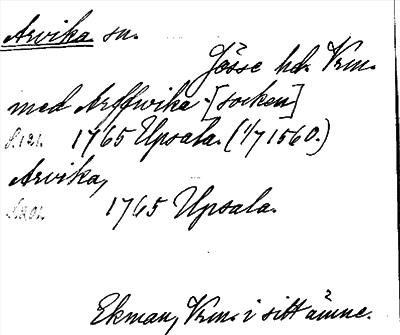 Arvika sn.
Jösse hd. Vrm.
med Arffwika [socken]
S.121. 1765 Upsala. (1/7 1560.)
Arvika,
S.201. 1765 Upsala.
Ekman, Vrm. i sitt ämne.